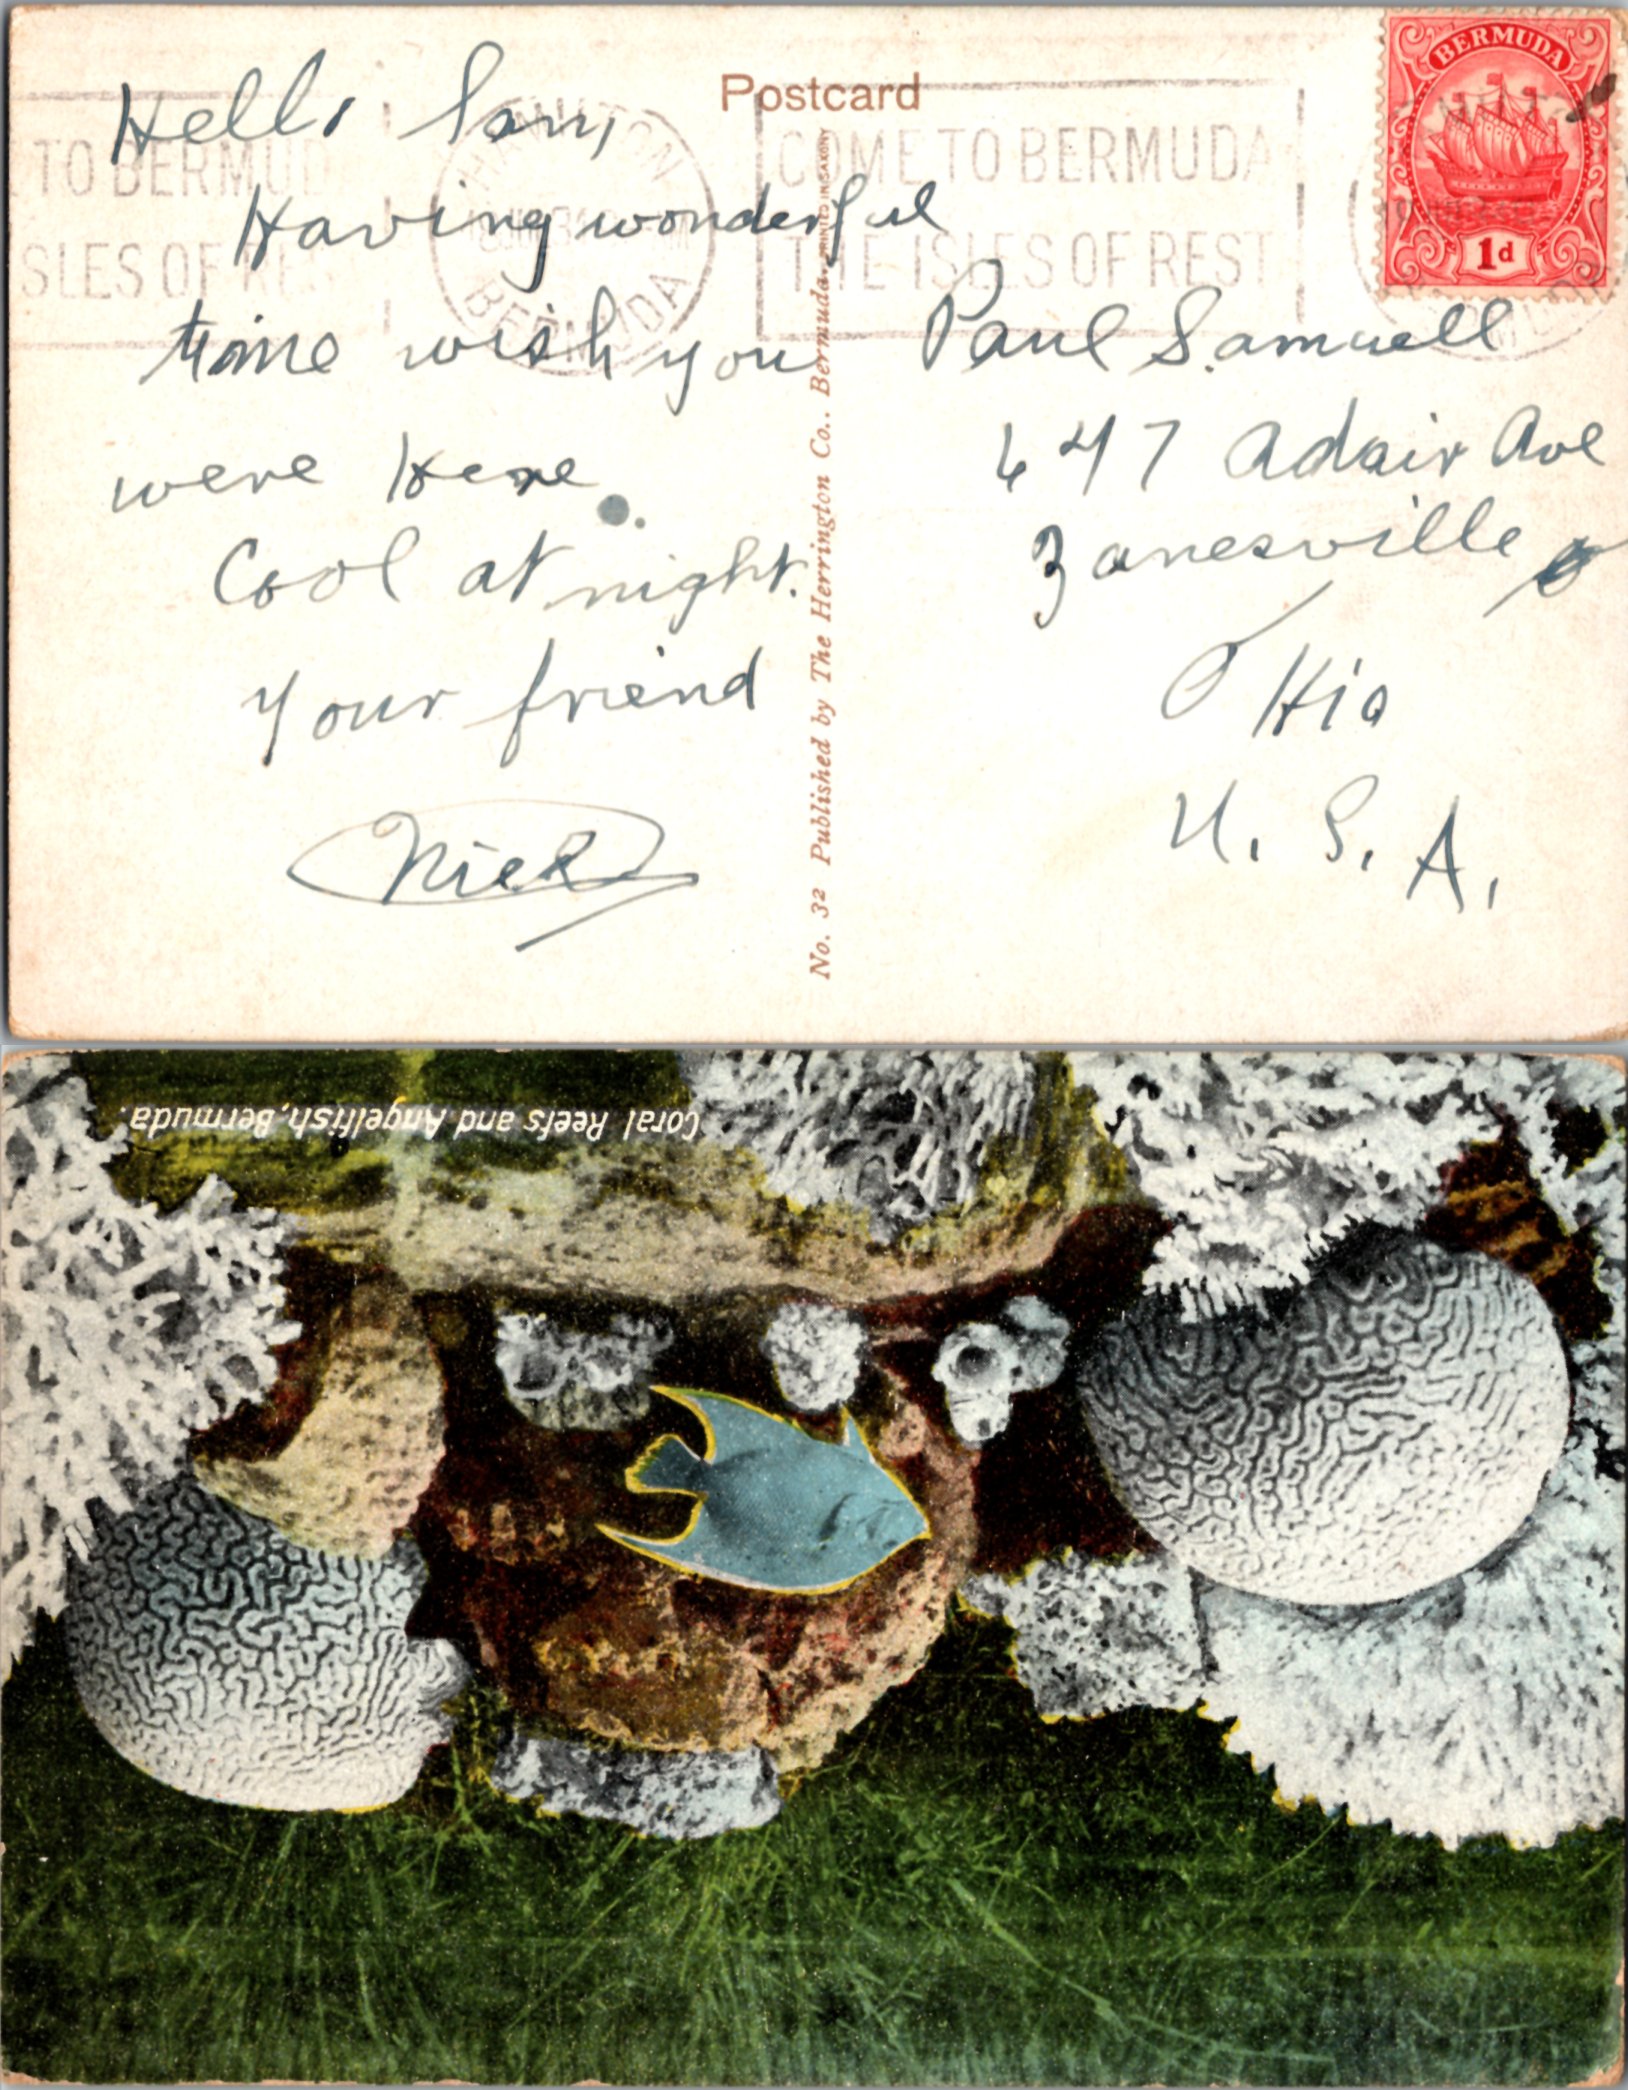 Postcard
BERMUDA
1d
COME TO BERMUDA
THE ISLES OF REST
TO BERMUD
ISLES OF RES
HAMILTON
BERMUDA
Hello Sam,
Having wonderful
time wish you
were Here.
Cool at night.
Your friend
Nick
Paul Samuell
647 Adair Ave
Zanesville
OHio
U. S. A.
No. 32 Published by The Herrington Co., Bermuda. PRINTED IN SAXONY
Coral Reefs and Angelfish, Bermuda.